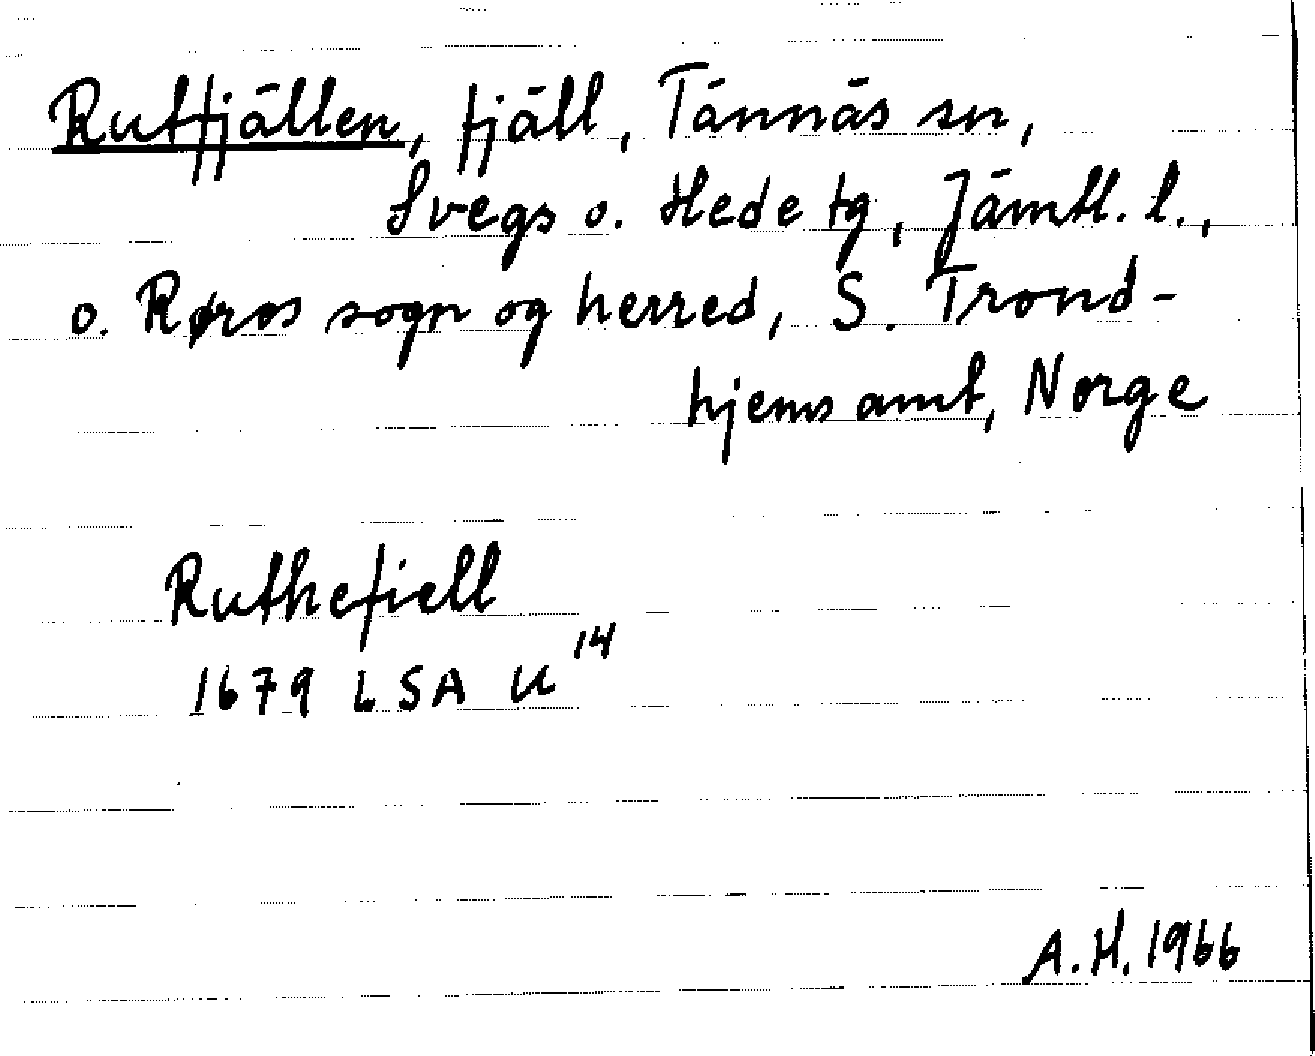 Rutfjällen, fjäll, Tännäs sn,
Svegs o. Hede tg, Jämtl. l.,
o. Røros sogn og herred, S. Trond-
hjems amt, Norge
Ruthefiell
1679 LSA U 14
A.H. 1966